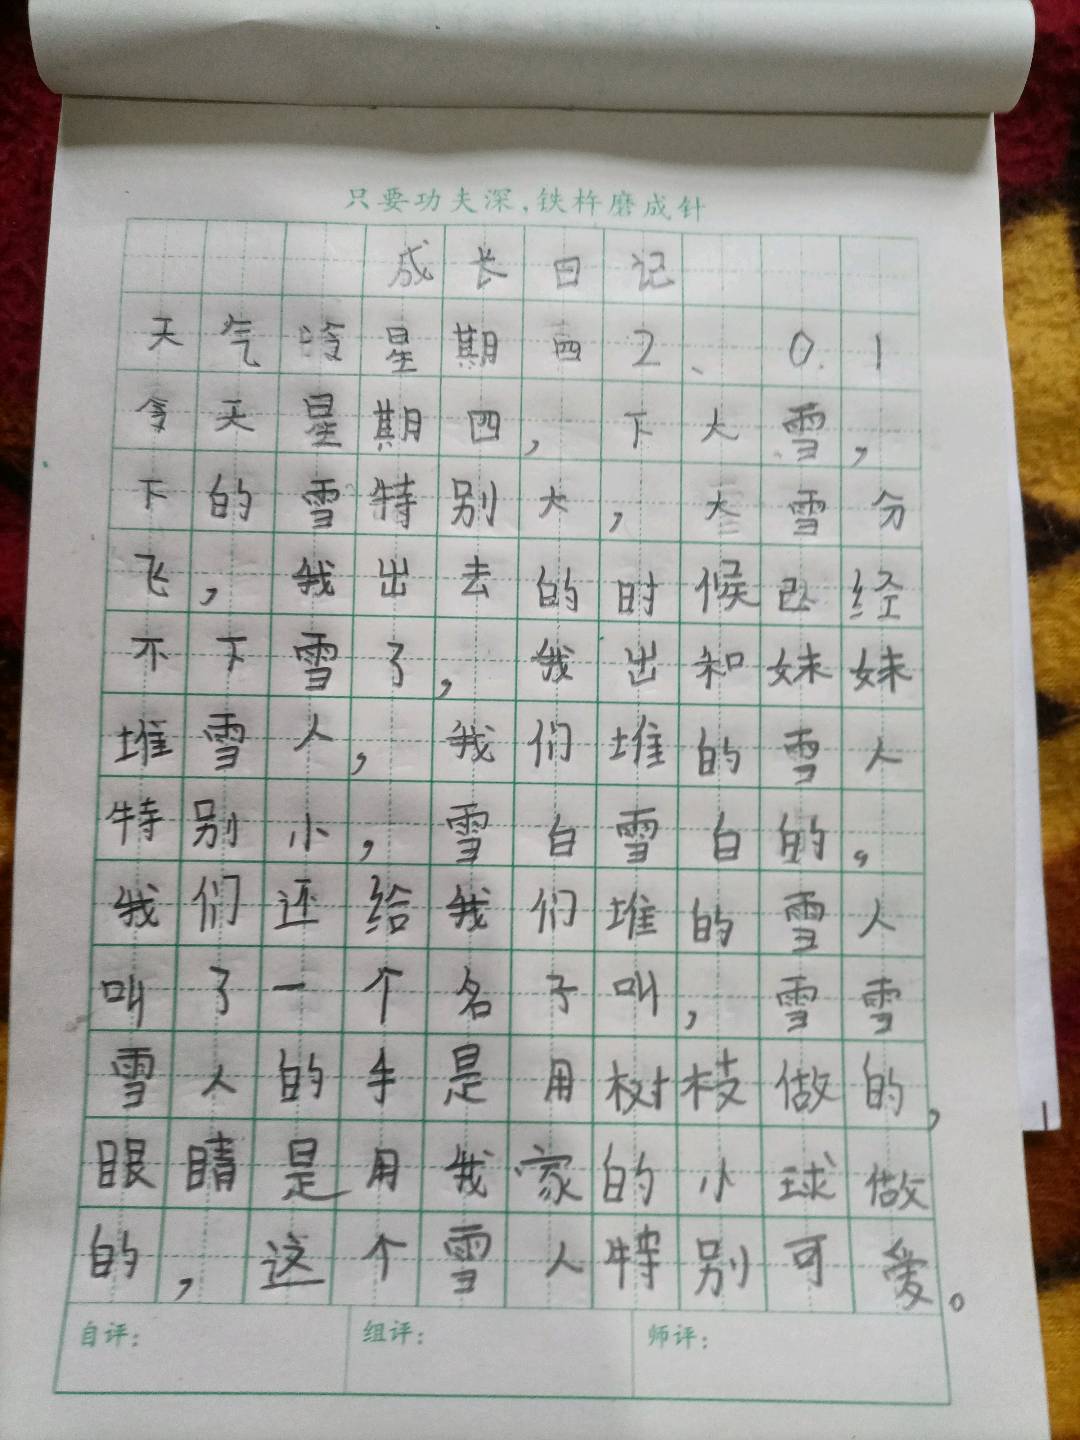 只要功夫深,铁杵磨成针
成长日记
天气冷星期四2、0.1
今天星期四，下大雪，
下的雪特别大，大雪分
飞，我出去的时候已经
不下雪了，我出和妹妹
堆雪人，我们堆的雪人
特别小，雪白雪白的。
我们还给我们堆的雪人
叫了一个名子叫，雪雪
雪人的手是用树枝做的，
眼睛是用我家的小球做
的，这个雪人特别可爱。
自评： 组评： 师评：